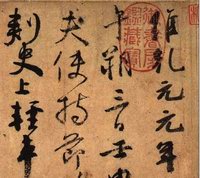 維乾元元年
午朔三日壬
夫使持節
刺史上輕車